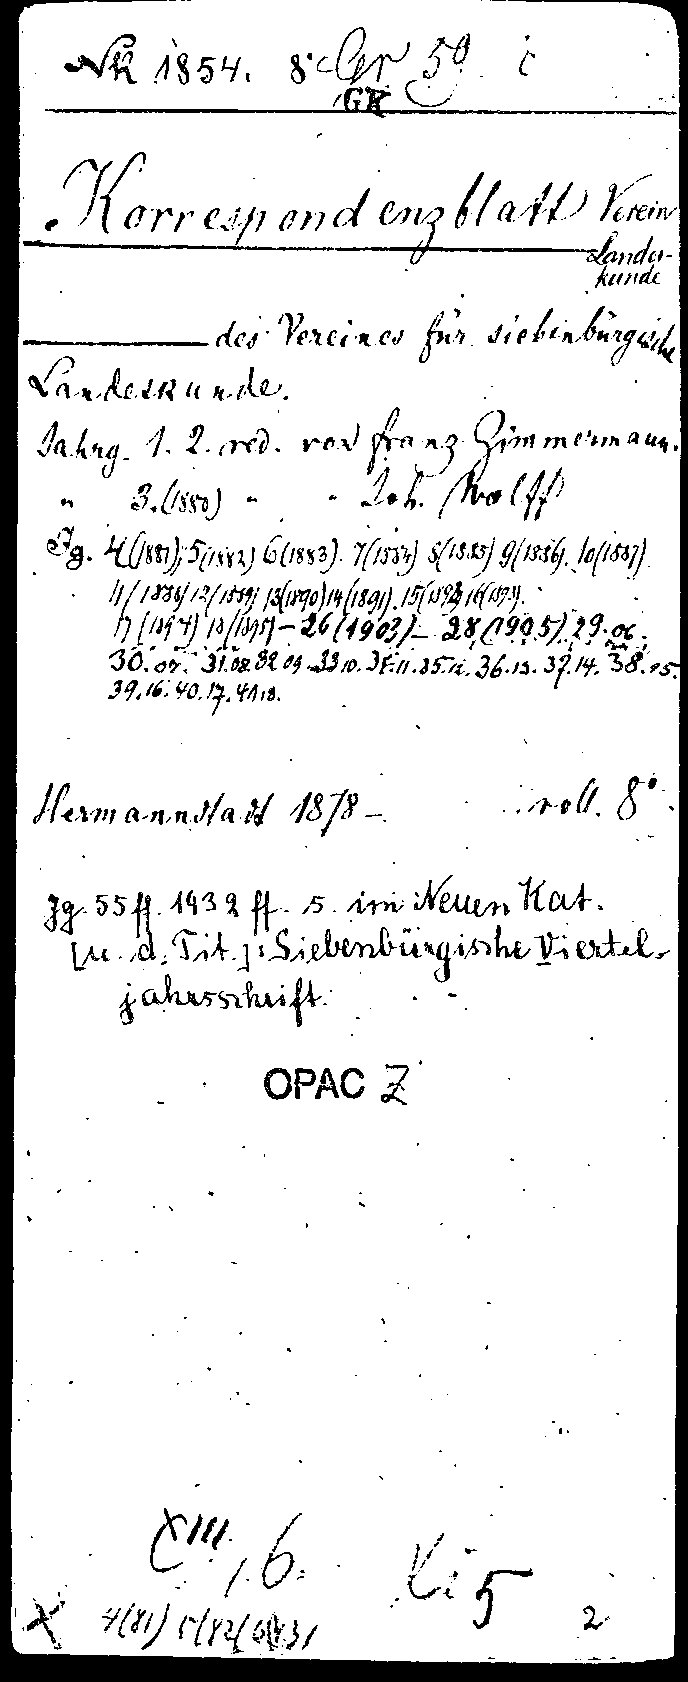 NK 1854. 8° Gr 50 i
GK
Korrespondenzblatt Verein
Landes-
kunde
des Vereines für siebenbürgische
Landeskunde.
Jahrg. 1. 2. red. von Franz Zimmermann.
" 3.(1880) " " Joh. Wolff
Jg. 4(1881); 5(1882) 6(1883). 7(1884) 8(1885) 9(1886). 10(1887)
11(1888) 12(1889) 13(1890) 14(1891). 15(1892) 16(1893).
17(1894) 18(1895) - 26(1903) - 28(1905), 29.06.
30.07. 31.08. 32.09. 33.10. 34.11. 35.12. 36.13. 37.14. 38.15.
39.16. 40.17. 41.18.
Hermannstadt 1878 - voll. 8°.
Jg. 55 ff. 1932 ff. s. im Neuen Kat.
[u. d. Tit.]: Siebenbürgische Viertel-
jahrsschrift.
OPAC Z
XIII, 6.
5
4(81) 5(82) 6(83)
2